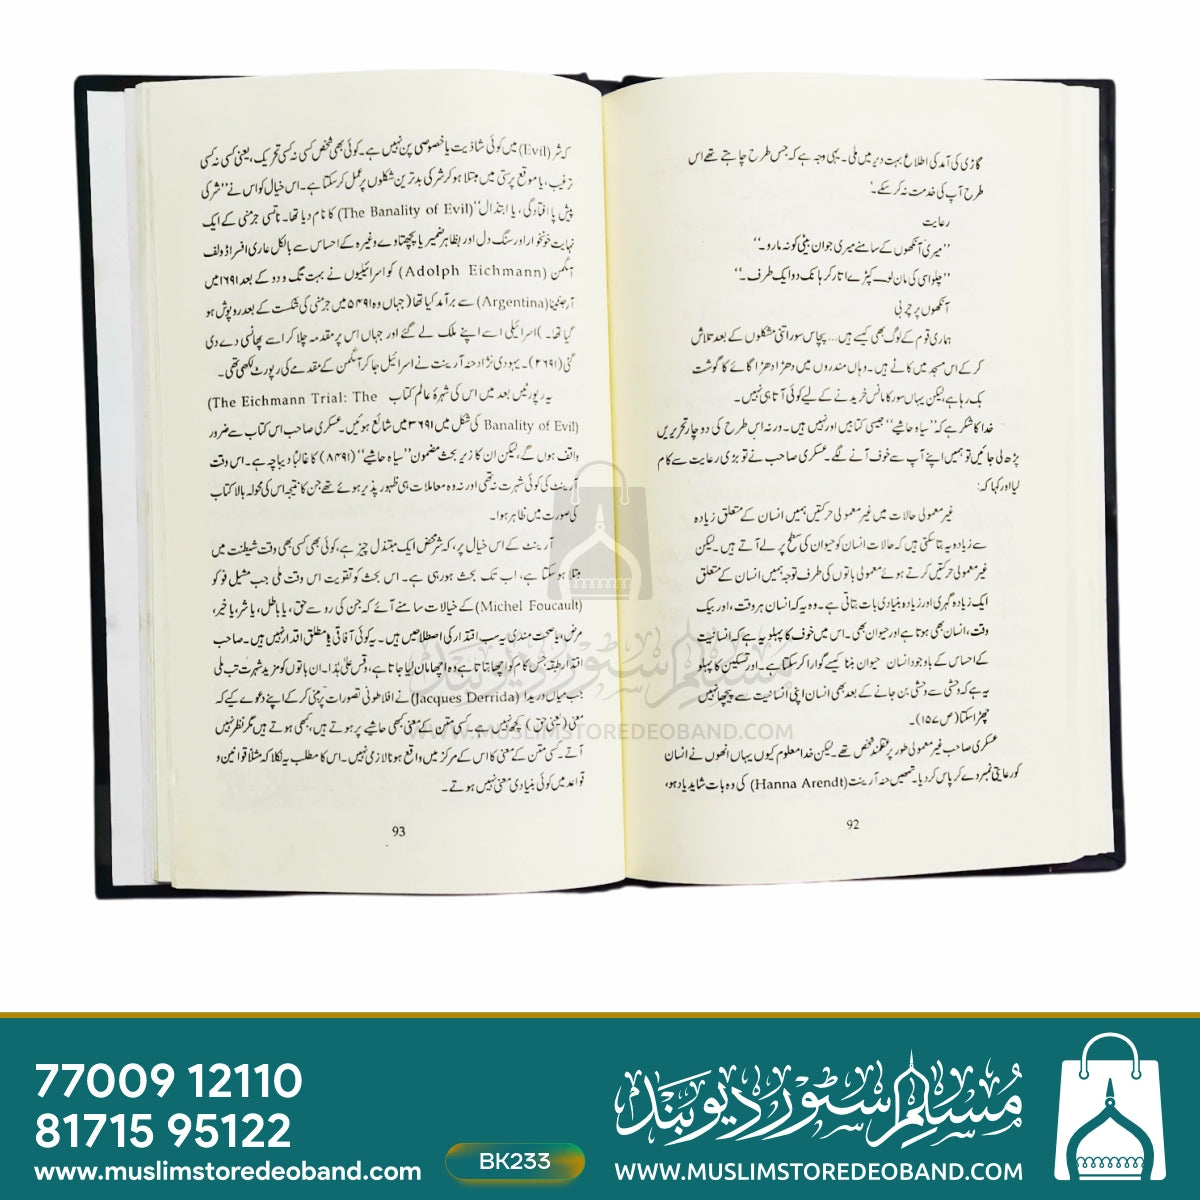 گازی کی آمد کی اطلاع بہت دیر میں ملی۔ یہی وجہ ہے کہ جس طرح چاہتے تھے اس
طرح آپ کی خدمت نہ کر سکے۔
رعایت
’’میری آنکھوں کے سامنے میری جوان بیٹی کو نہ مارو۔‘‘
’’چلو اسی کی مان لو۔ کپڑے اتار کر ہانک دو ایک طرف۔‘‘
آنکھوں پر چربی
ہماری قوم کے لوگ بھی کیسے ہیں... پچاس سور اتنی مشکلوں کے بعد تلاش
کر کے اس مسجد میں کاٹے ہیں۔ وہاں مندروں میں دھڑا دھڑ گائے کا گوشت
بک رہا ہے، لیکن یہاں سور کا مانس خریدنے کے لیے کوئی آتا ہی نہیں۔
خدا کا شکر ہے کہ ’’سیاہ حاشیے‘‘ جیسی کتابیں اور نہیں ہیں۔ ورنہ اس طرح کی دو چار تحریریں
پڑھ لی جائیں تو ہمیں اپنے آپ سے خوف آنے لگے۔ عسکری صاحب نے تو بڑی رعایت سے کام
لیا اور کہا کہ:
غیر معمولی حالات میں غیر معمولی حرکتیں ہمیں انسان کے متعلق زیادہ
سے زیادہ یہ بتا سکتی ہیں کہ حالات انسان کو حیوان کی سطح پر لے آتے ہیں۔ لیکن
غیر معمولی حرکتیں کرتے ہوئے معمولی باتوں کی طرف توجہ ہمیں انسان کے متعلق
ایک زیادہ گہری اور زیادہ بنیادی بات بتاتی ہے۔ وہ یہ کہ انسان ہر وقت، اور بیک
وقت، انسان بھی ہوتا ہے اور حیوان بھی۔ اس میں خوف کا پہلو یہ ہے کہ انسانیت
کے احساس کے باوجود انسان حیوان بننا کیسے گوارا کر سکتا ہے۔ اور تسکین کا پہلو
یہ ہے کہ وحشی سے وحشی بن جانے کے بعد بھی انسان اپنی انسانیت سے پیچھا نہیں
چھڑا سکتا (ص ۱۵۷)۔
عسکری صاحب غیر معمولی طور پر عقلمند شخص تھے۔ لیکن خدا معلوم کیوں یہاں انھوں نے انسان
کو رعایتی نمبر دے کر پاس کر دیا۔ تمھیں حنہ آرینٹ (Hanna Arendt) کی وہ بات شاید یاد ہو،
92
کہ شر (Evil) میں کوئی شاذیت یا خصوصی پن نہیں ہے۔ کوئی بھی شخص کسی نہ کسی تحریک، یعنی کسی نہ کسی
ترغیب، یا موقع پرستی میں مبتلا ہو کر شر کی بدترین شکلوں پر عمل کر سکتا ہے۔ اس خیال کو اس نے ’’شر کی
پیش پا افتادگی، یا ابتذال‘‘ (The Banality of Evil) کا نام دیا تھا۔ ناتسی جرمنی کے ایک
نہایت خونخوار اور سنگ دل اور بظاہر ضمیر یا پچھتاوے وغیرہ کے احساس سے بالکل عاری افسر اڈولف
آئکمن (Adolph Eichmann) کو اسرائیلیوں نے بہت تگ و دو کے بعد ۱۶۹۱ میں
آرجنٹینا (Argentina) سے برآمد کیا تھا (جہاں وہ ۵۴۹۱ میں جرمنی کی شکست کے بعد روپوش ہو
گیا تھا۔) اسرائیلی اسے اپنے ملک لے گئے اور جہاں اس پر مقدمہ چلا کر اسے پھانسی دے دی
گئی (۲۶۹۱)۔ یہودی نژاد حنہ آرینٹ نے اسرائیل جا کر آئکمن کے مقدمے کی رپورٹ لکھی تھی۔
یہ رپورٹیں بعد میں اس کی شہرۂ عالم کتاب (The Eichmann Trial: The
Banality of Evil) کی شکل میں ۳۶۹۱ میں شائع ہوئیں۔ عسکری صاحب اس کتاب سے ضرور
واقف ہوں گے، لیکن ان کا زیر بحث مضمون ’’سیاہ حاشیے‘‘ (۸۴۹۱) کا غالباً دیباچہ ہے۔ اس وقت
آرینٹ کی کوئی شہرت نہ تھی اور نہ وہ معاملات ہی ظہور پذیر ہوئے تھے جن کا نتیجہ اس کی محولہ بالا کتاب
کی صورت میں ظاہر ہوا۔
آرینٹ کے اس خیال پر، کہ شر محض ایک مبتذل چیز ہے، کوئی بھی کسی بھی وقت شیطنت میں
مبتلا ہو سکتا ہے، اب تک بحث ہو رہی ہے۔ اس بحث کو تقویت اس وقت ملی جب مشیل فوکو
(Michel Foucault) کے خیالات سامنے آئے کہ جن کی رو سے حق، یا باطل، یا شر، یا خیر،
مرض، یا صحت مندی یہ سب اقتدار کی اصطلاحیں ہیں۔ یہ کوئی آفاقی یا مطلق اقدار نہیں ہیں۔ صاحب
اقتدار طبقہ جس کام کو اچھا بتاتا ہے وہ اچھا مان لیا جاتا ہے، وقس علیٰ ہٰذا۔ ان باتوں کو مزید شہرت تب ملی
جب میاں دریدا (Jacques Derrida) نے افلاطونی تصورات پر مبنی کر کے اپنے دعوے کیے کہ
معنی (یعنی حق) کچھ نہیں ہے۔ کسی متن کے معنی کبھی حاشیے پر ہوتے ہیں، کبھی ہوتے ہیں مگر نظر نہیں
آتے۔ کسی متن کے معنی کا اس کے مرکز میں واقع ہونا لازمی نہیں۔ اس کا مطلب یہ نکلا کہ مثلاً قوانین و
قواعد میں کوئی بنیادی معنی نہیں ہوتے۔
93
مسلم سٹور دیوبند
WWW.MUSLIMSTOREDEOBAND.COM
77009 12110
81715 95122
www.muslimstoredeoband.com
BK233
مسلم سٹور دیوبند
WWW.MUSLIMSTOREDEOBAND.COM